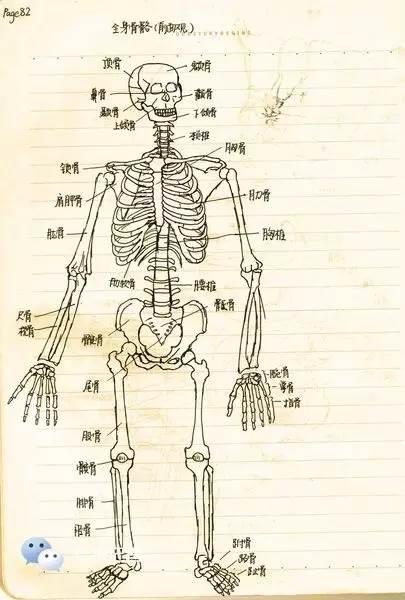 Page82
全身骨骼(前面观)
顶骨
额骨
鼻骨
颞骨
颧骨
上颌骨
下颌骨
颈椎
胸骨
锁骨
肩胛骨
肋骨
肱骨
胸椎
肋软骨
腰椎
骶骨
尺骨
桡骨
髋骨
尾骨
腕骨
掌骨
指骨
股骨
髌骨
腓骨
胫骨
跗骨
跖骨
趾骨